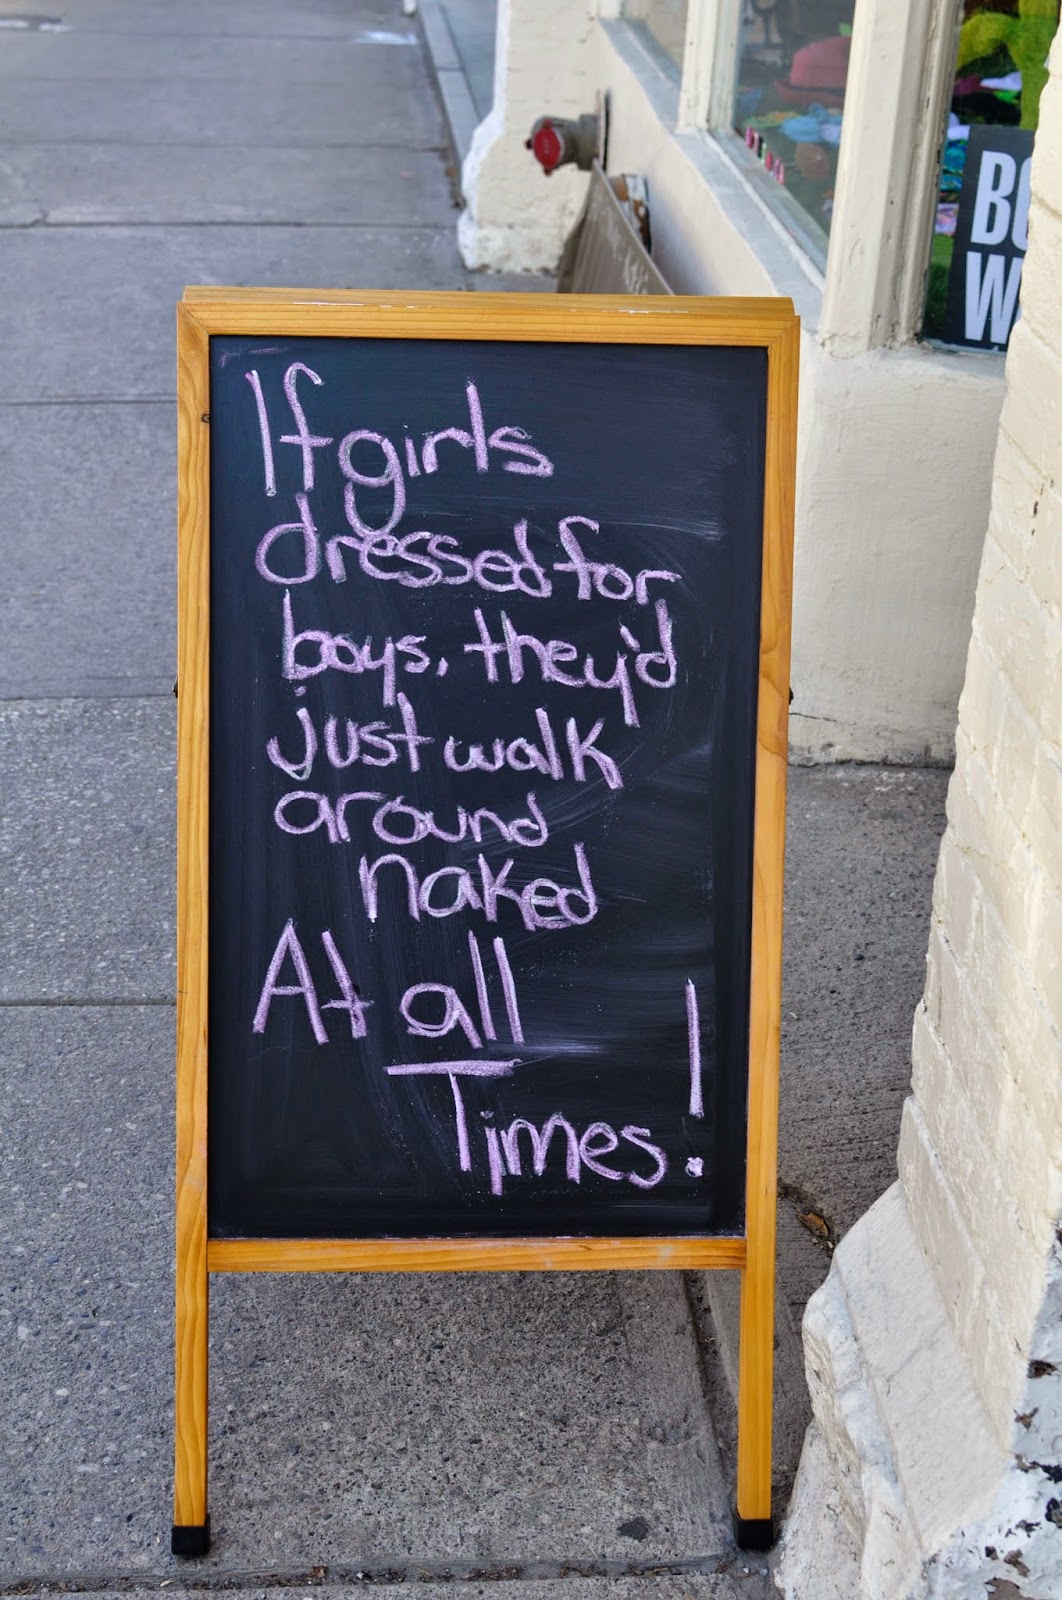 If girls
dressed for
boys, they'd
just walk
around
naked
At all
Times!